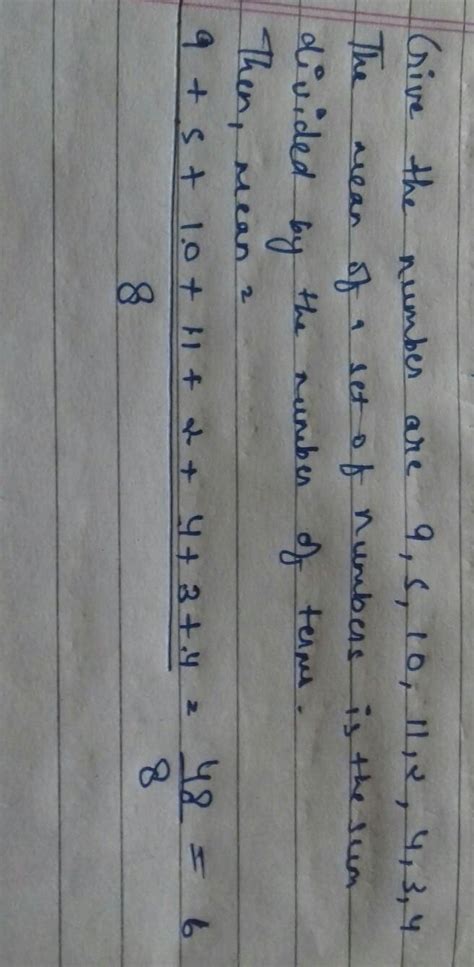 Give the number are 9, 5, 10, 11, 2, 4, 3, 4
The mean of a set of numbers is the sum
divided by the number of terms.
Then, mean =
9 + 5 + 10 + 11 + 2 + 4 + 3 + 4 = 48 = 6
8 8